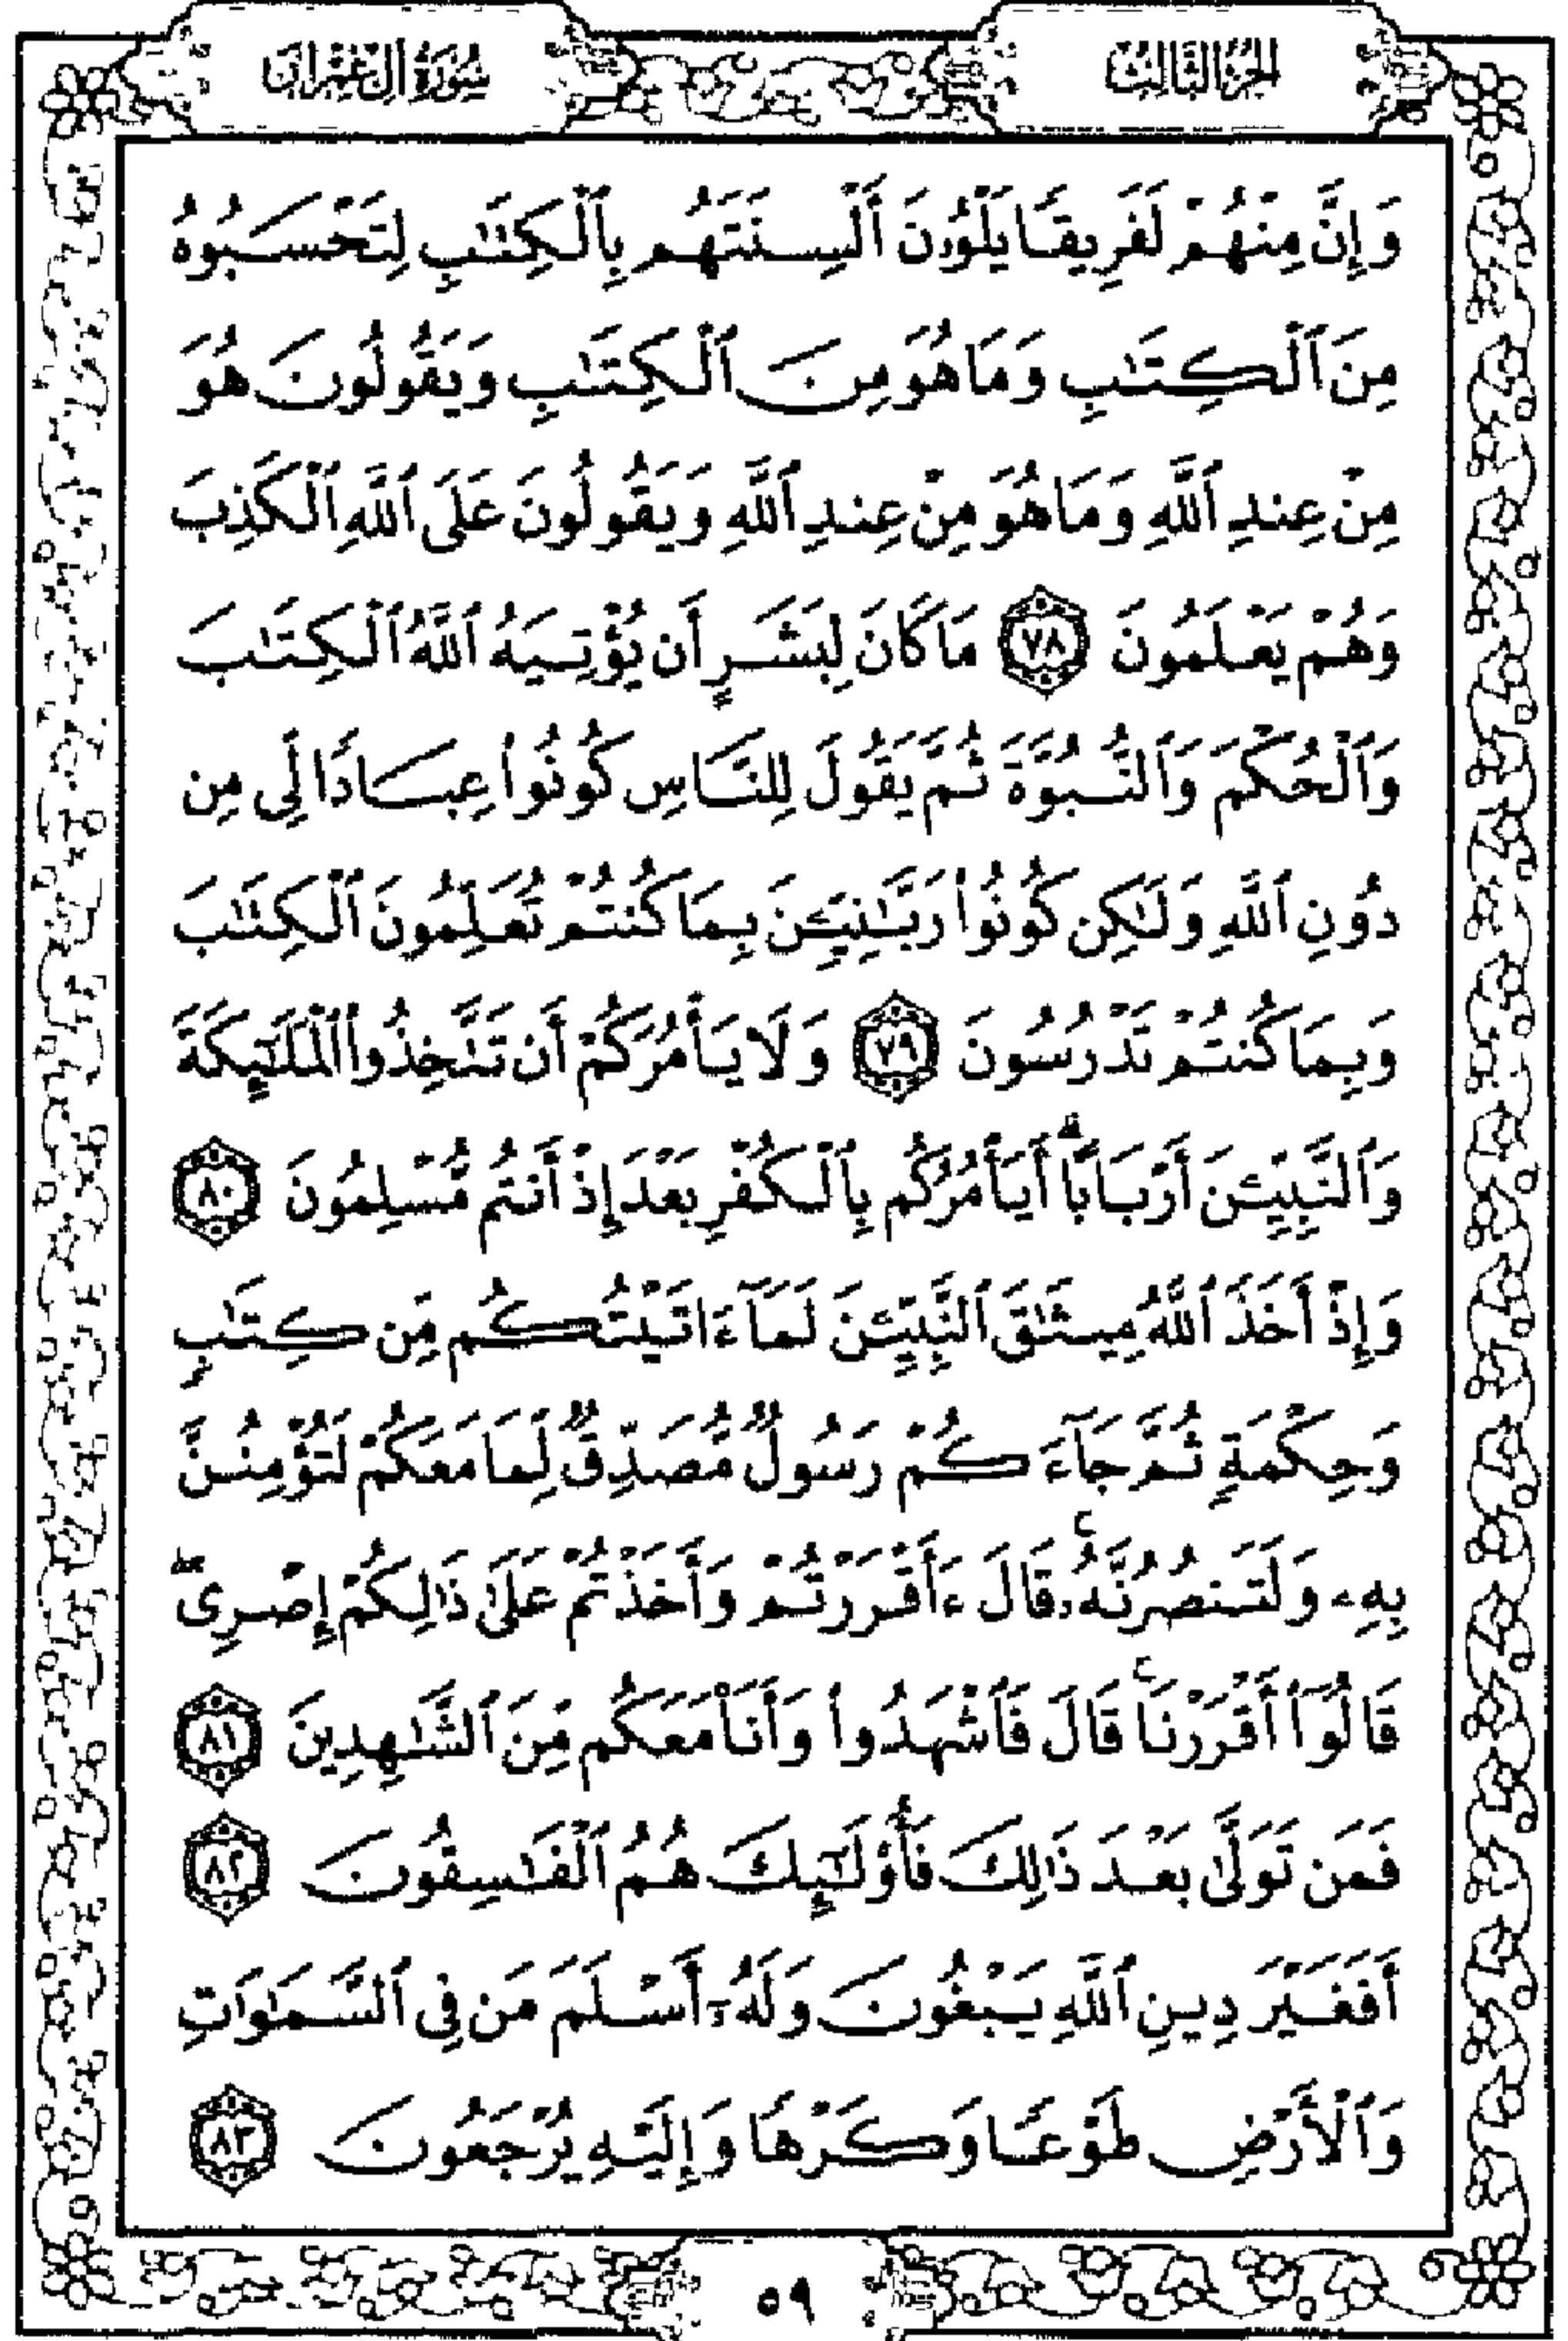 الجزء الثالث
سورة آل عمران
وَإِنَّ مِنْهُمْ لَفَرِيقًا يَلْوُۥنَ أَلْسِنَتَهُم بِٱلْكِتَٰبِ لِتَحْسَبُوهُ
مِنَ ٱلْكِتَٰبِ وَمَا هُوَ مِنَ ٱلْكِتَٰبِ وَيَقُولُونَ هُوَ
مِنْ عِندِ ٱللَّهِ وَمَا هُوَ مِنْ عِندِ ٱللَّهِ وَيَقُولُونَ عَلَى ٱللَّهِ ٱلْكَذِبَ
وَهُمْ يَعْلَمُونَ ٧٨ مَا كَانَ لِبَشَرٍ أَن يُؤْتِيَهُ ٱللَّهُ ٱلْكِتَٰبَ
وَٱلْحُكْمَ وَٱلنُّبُوَّةَ ثُمَّ يَقُولَ لِلنَّاسِ كُونُوا۟ عِبَادًا لِّى مِن
دُونِ ٱللَّهِ وَلَٰكِن كُونُوا۟ رَبَّٰنِيِّـۧنَ بِمَا كُنتُمْ تُعَلِّمُونَ ٱلْكِتَٰبَ
وَبِمَا كُنتُمْ تَدْرُسُونَ ٧٩ وَلَا يَأْمُرَكُمْ أَن تَتَّخِذُوا۟ ٱلْمَلَٰٓئِكَةَ
وَٱلنَّبِيِّـۧنَ أَرْبَابًا ۗ أَيَأْمُرُكُم بِٱلْكُفْرِ بَعْدَ إِذْ أَنتُم مُّسْلِمُونَ ٨٠
وَإِذْ أَخَذَ ٱللَّهُ مِيثَٰقَ ٱلنَّبِيِّـۧنَ لَمَآ ءَاتَيْتُكُم مِّن كِتَٰبٍ
وَحِكْمَةٍ ثُمَّ جَآءَكُمْ رَسُولٌ مُّصَدِّقٌ لِّمَا مَعَكُمْ لَتُؤْمِنُنَّ
بِهِۦ وَلَتَنصُرُنَّهُۥ ۚ قَالَ ءَأَقْرَرْتُمْ وَأَخَذْتُمْ عَلَىٰ ذَٰلِكُمْ إِصْرِى ۖ
قَالُوٓا۟ أَقْرَرْنَا ۚ قَالَ فَٱشْهَدُوا۟ وَأَنَا۠ مَعَكُم مِّنَ ٱلشَّٰهِدِينَ ٨١
فَمَن تَوَلَّىٰ بَعْدَ ذَٰلِكَ فَأُو۟لَٰٓئِكَ هُمُ ٱلْفَٰسِقُونَ ٨٢
أَفَغَيْرَ دِينِ ٱللَّهِ يَبْغُونَ وَلَهُۥٓ أَسْلَمَ مَن فِى ٱلسَّمَٰوَٰتِ
وَٱلْأَرْضِ طَوْعًا وَكَرْهًا وَإِلَيْهِ يُرْجَعُونَ ٨٣
٥٩